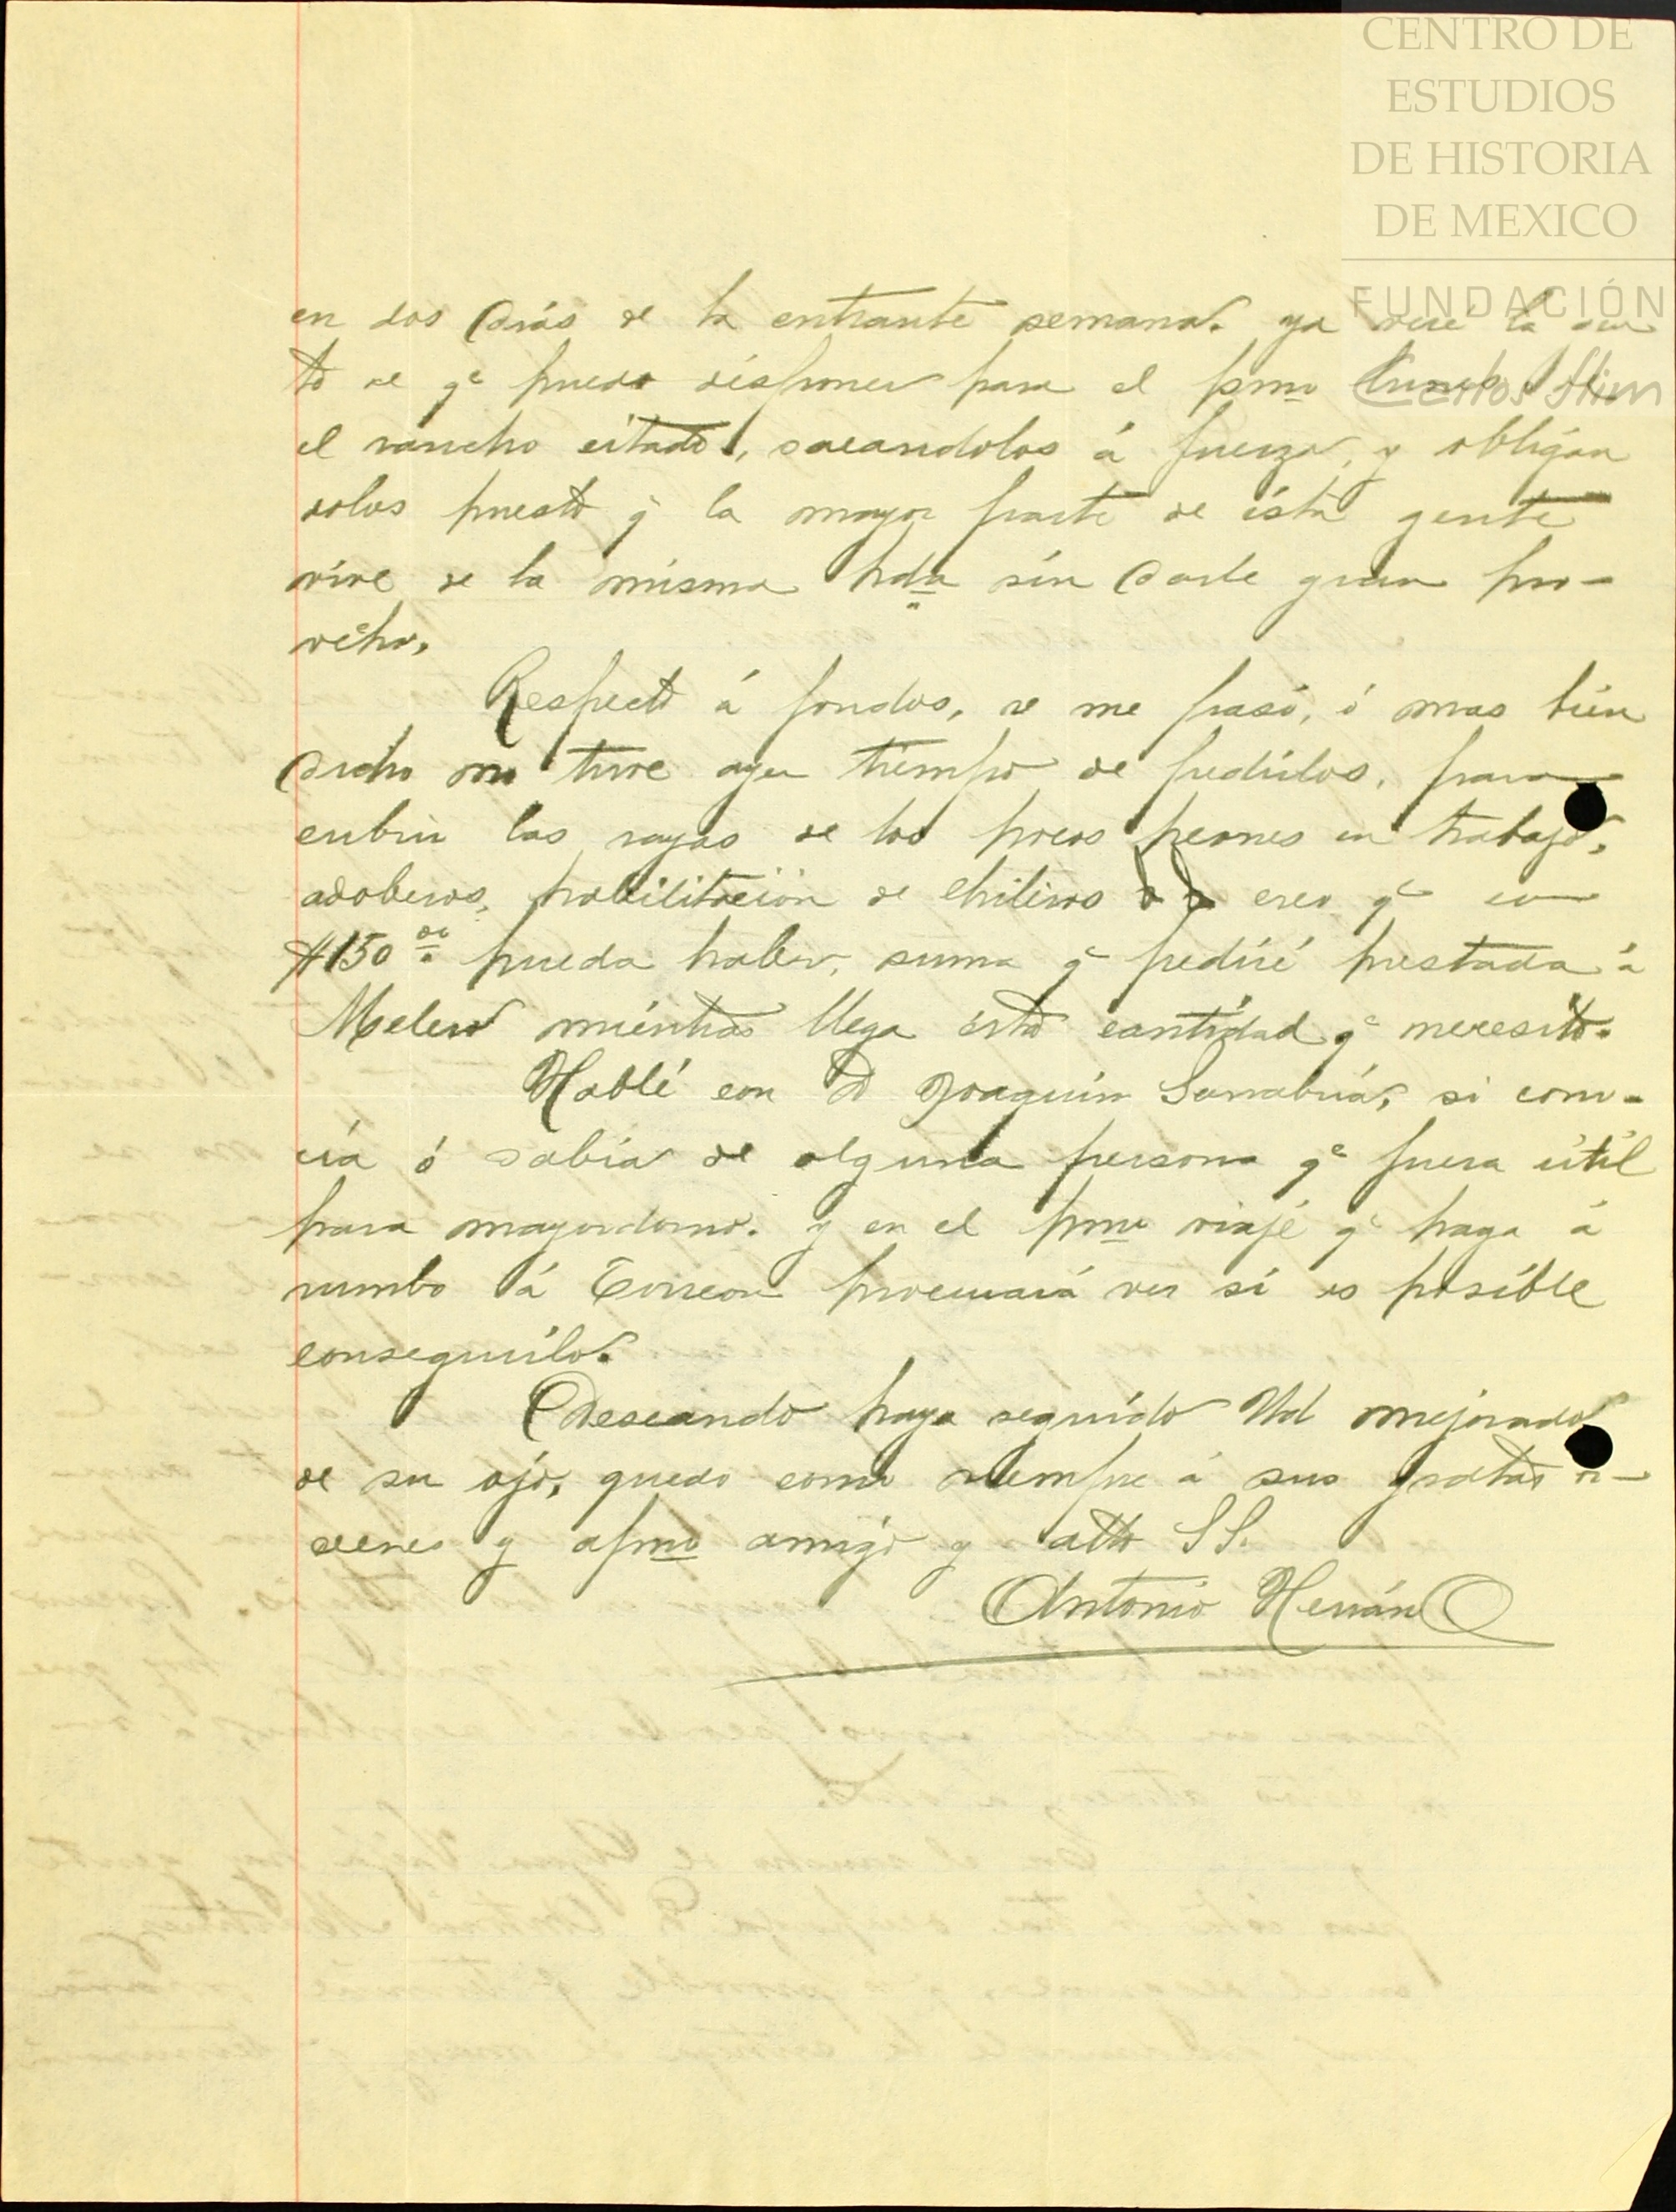 CENTRO DE
ESTUDIOS
DE HISTORIA
DE MEXICO
FUNDACIÓN
Carlos Slim
en dos dias de la entrante semana. ya diré la
to de qe puedo disponer para el pmo lunes
el rancho citado, sacandolos á fuerza, y obligan
dolos puesto q la mayor parte de ésta gente
vive de la misma hda sin darle gran pro-
vecho.
Respecto á fondos, se me pasó, ó mas bien
dicho no tuve ayer tiempo de pedirlos, para
cubrir las rayas de los pocos peones en trabajo,
adoberos, habilitación de chiliros creo qe con
$150 oo pueda haber, suma qe pediré prestada á
Melero mientras llega esta cantidad qe necesito.
Hablé con D Joaquin Sanabria, si cono-
cía ó sabía de alguna persona qe fuera útil
para mayordomo. y en el pmo viaje qe haga á
rumbo á Torreon procurará ver si es posible
conseguirlo.
Deseando haya seguido Ud mejorado
de su ojo, quedo como siempre á sus gratas ór-
denes y afmo amigo y atto SS.
Antonio Hernán